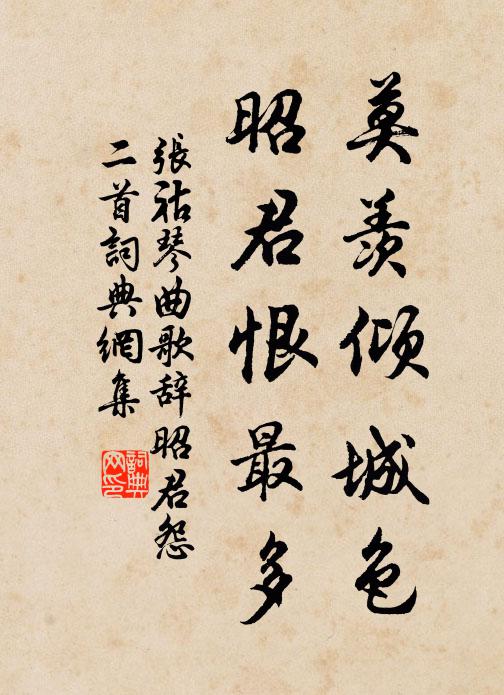 莫羨傾城色
昭君恨最多
張祜琴曲歌辞昭君怨
二首詞典網集
詞典
网印